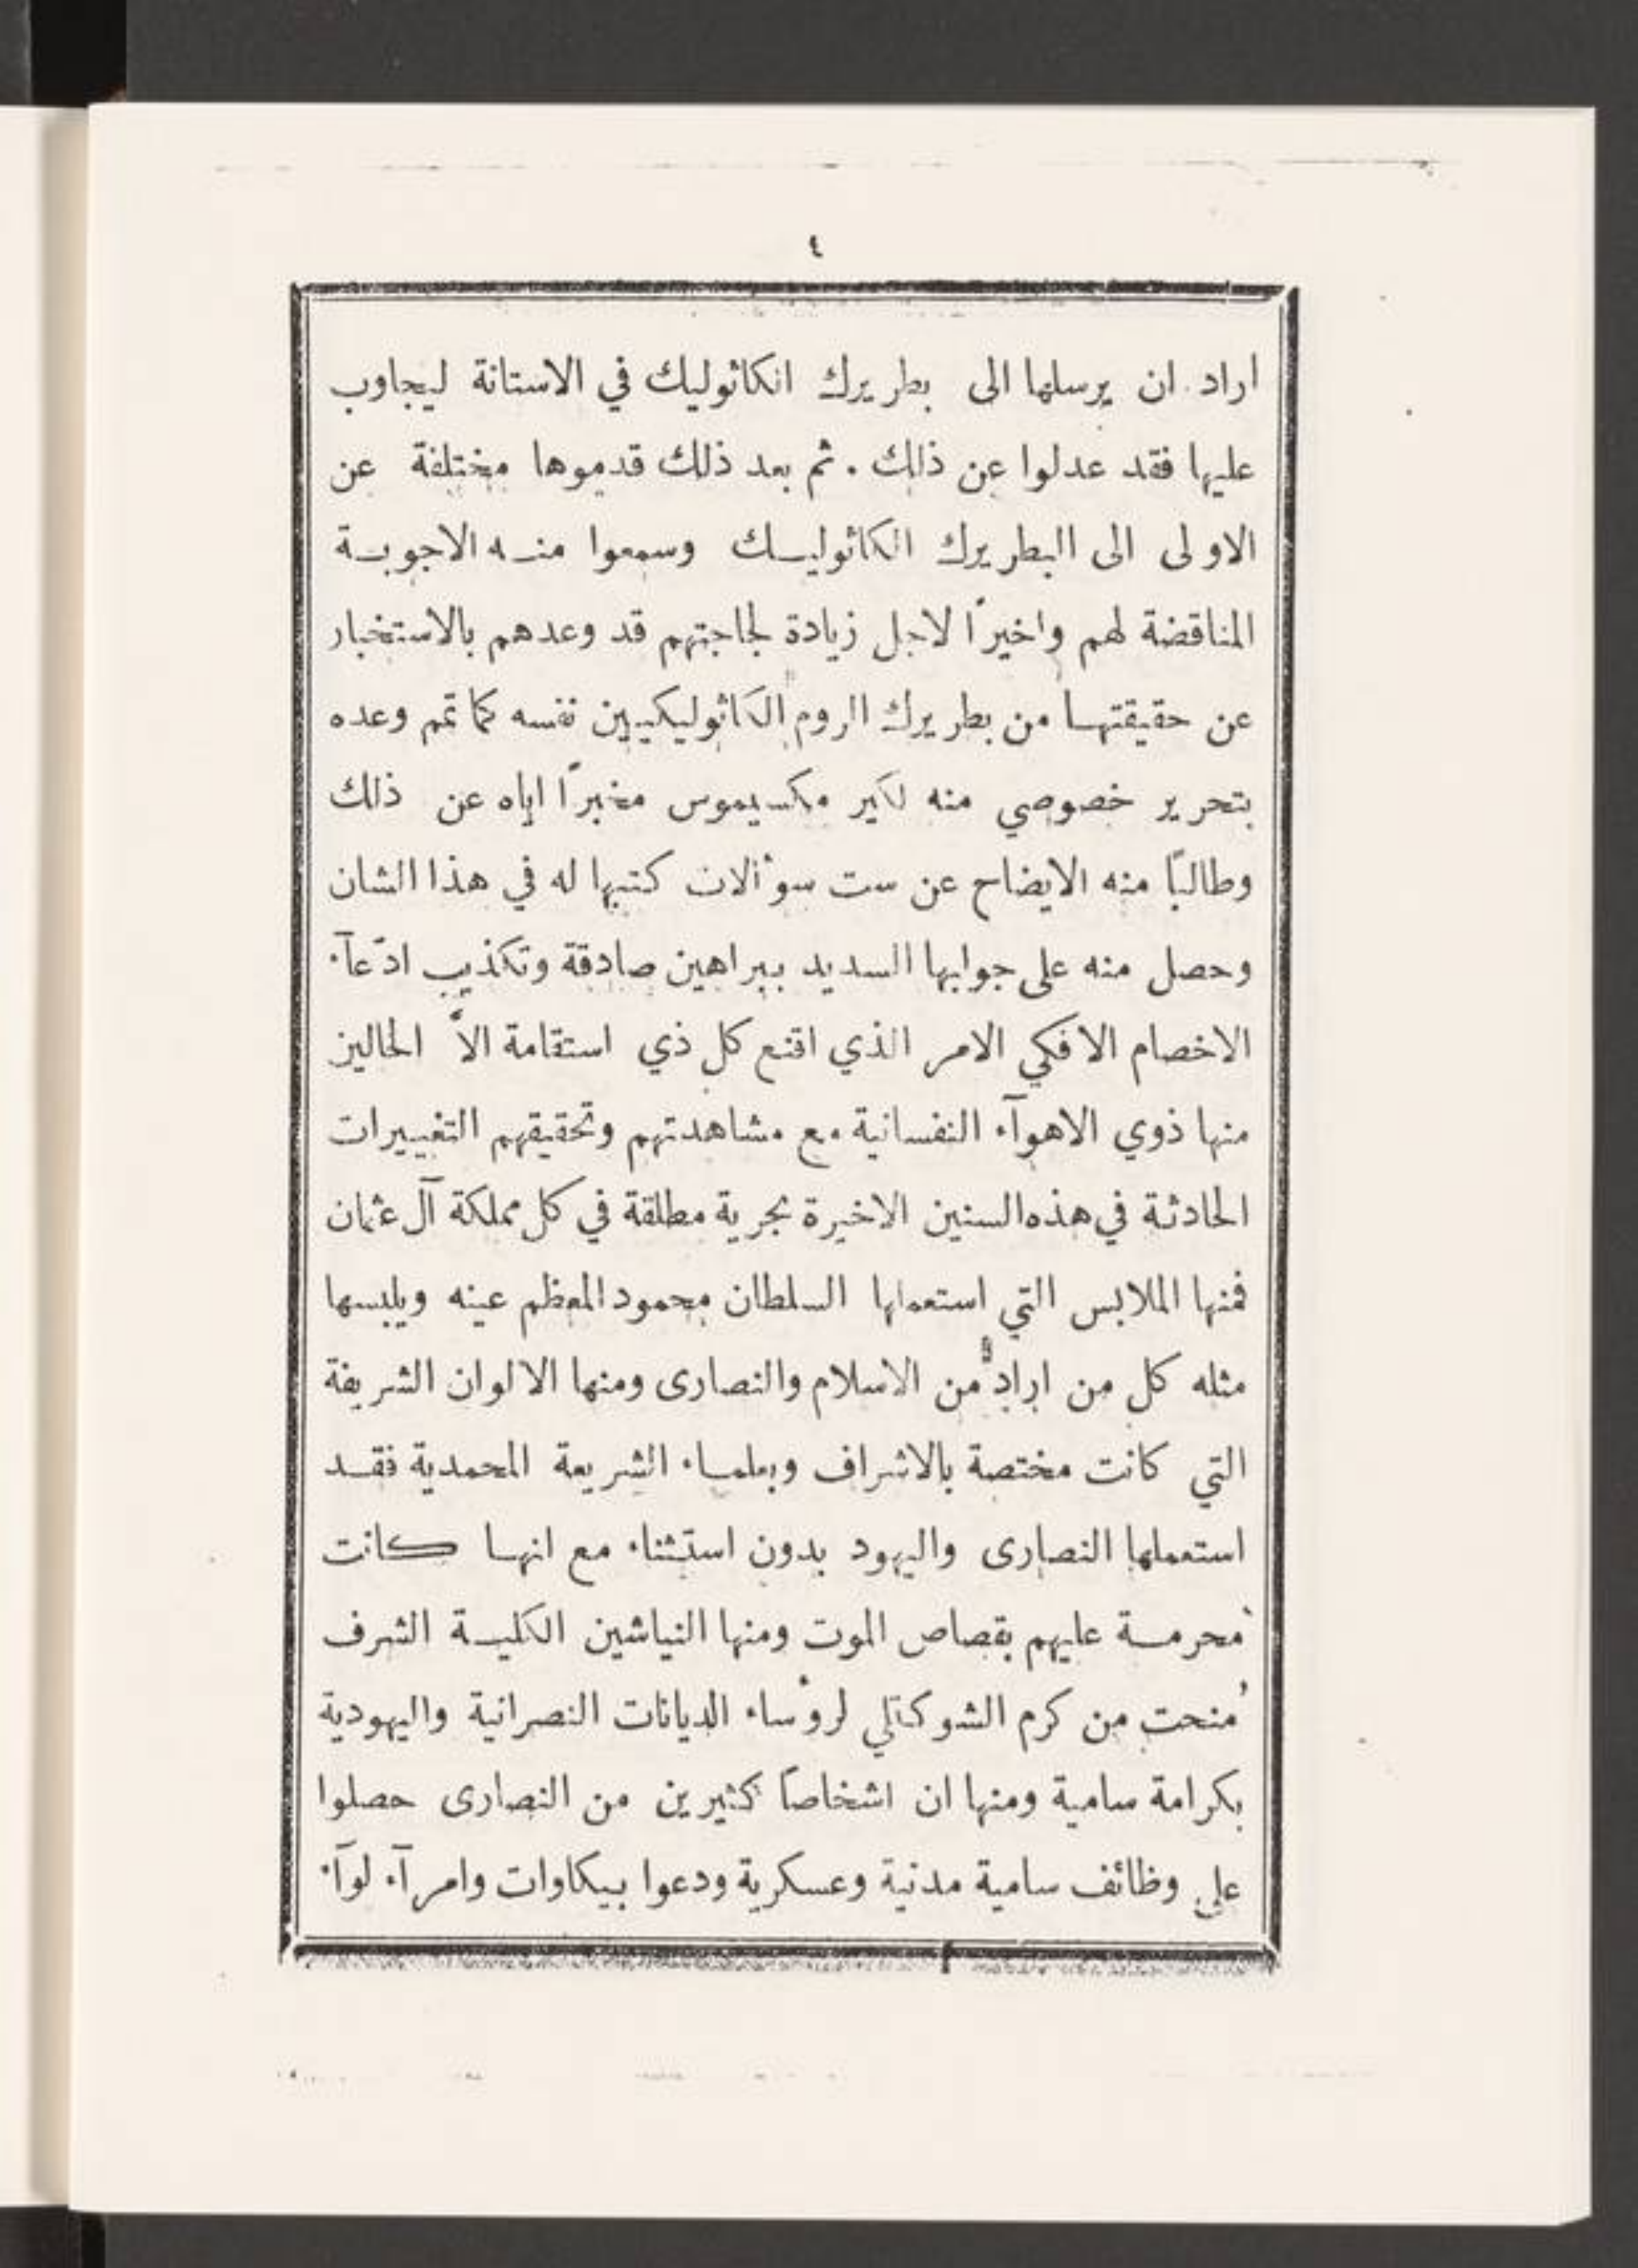 ٤
اراد ان يرسلها الى بطريرك الكاثوليك في الاستانة ليجاوب
عليها فقد عدلوا عن ذلك . ثم بعد ذلك قدموها مختلفة عن
الاولى الى البطريرك الكاثوليك وسمعوا منه الاجوبة
المناقضة لهم واخيرًا لاجل زيادة لجاجتهم قد وعدهم بالاستخبار
عن حقيقتها من بطريرك الروم الكاثوليكيين نفسه كما تم وعده
بتحرير خصوصي منه لكير مكسيموس مخبرًا اياه عن ذلك
وطالبًا منه الايضاح عن ست سوألات كتبها له في هذا الشان
وحصل منه على جوابها السديد ببراهين صادقة وتكذيب ادّعآء
الاخصام الافكي الامر الذي اقنع كل ذي استقامة الاَّ الخالين
منها ذوي الاهوآء النفسانية مع مشاهدتهم وتحقيقهم التغييرات
الحادثة في هذه السنين الاخيرة بحرية مطلقة في كل مملكة آل عثمان
فمنها الملابس التي استعملها السلطان محمود المعظم عينه ويلبسها
مثله كل من اراد من الاسلام والنصارى ومنها الالوان الشريفة
التي كانت مختصة بالاشراف وبعلماء الشريعة المحمدية فقد
استعملها النصارى واليهود بدون استثناء مع انها كانت
محرمة عليهم بقصاص الموت ومنها النياشين الكلية الشرف
مُنحت من كرم الشوكتلي لرؤساء الديانات النصرانية واليهودية
بكرامة سامية ومنها ان اشخاصاً كثيرين من النصارى حصلوا
على وظائف سامية مدنية وعسكرية ودعوا بيكاوات وامرآء لوآء